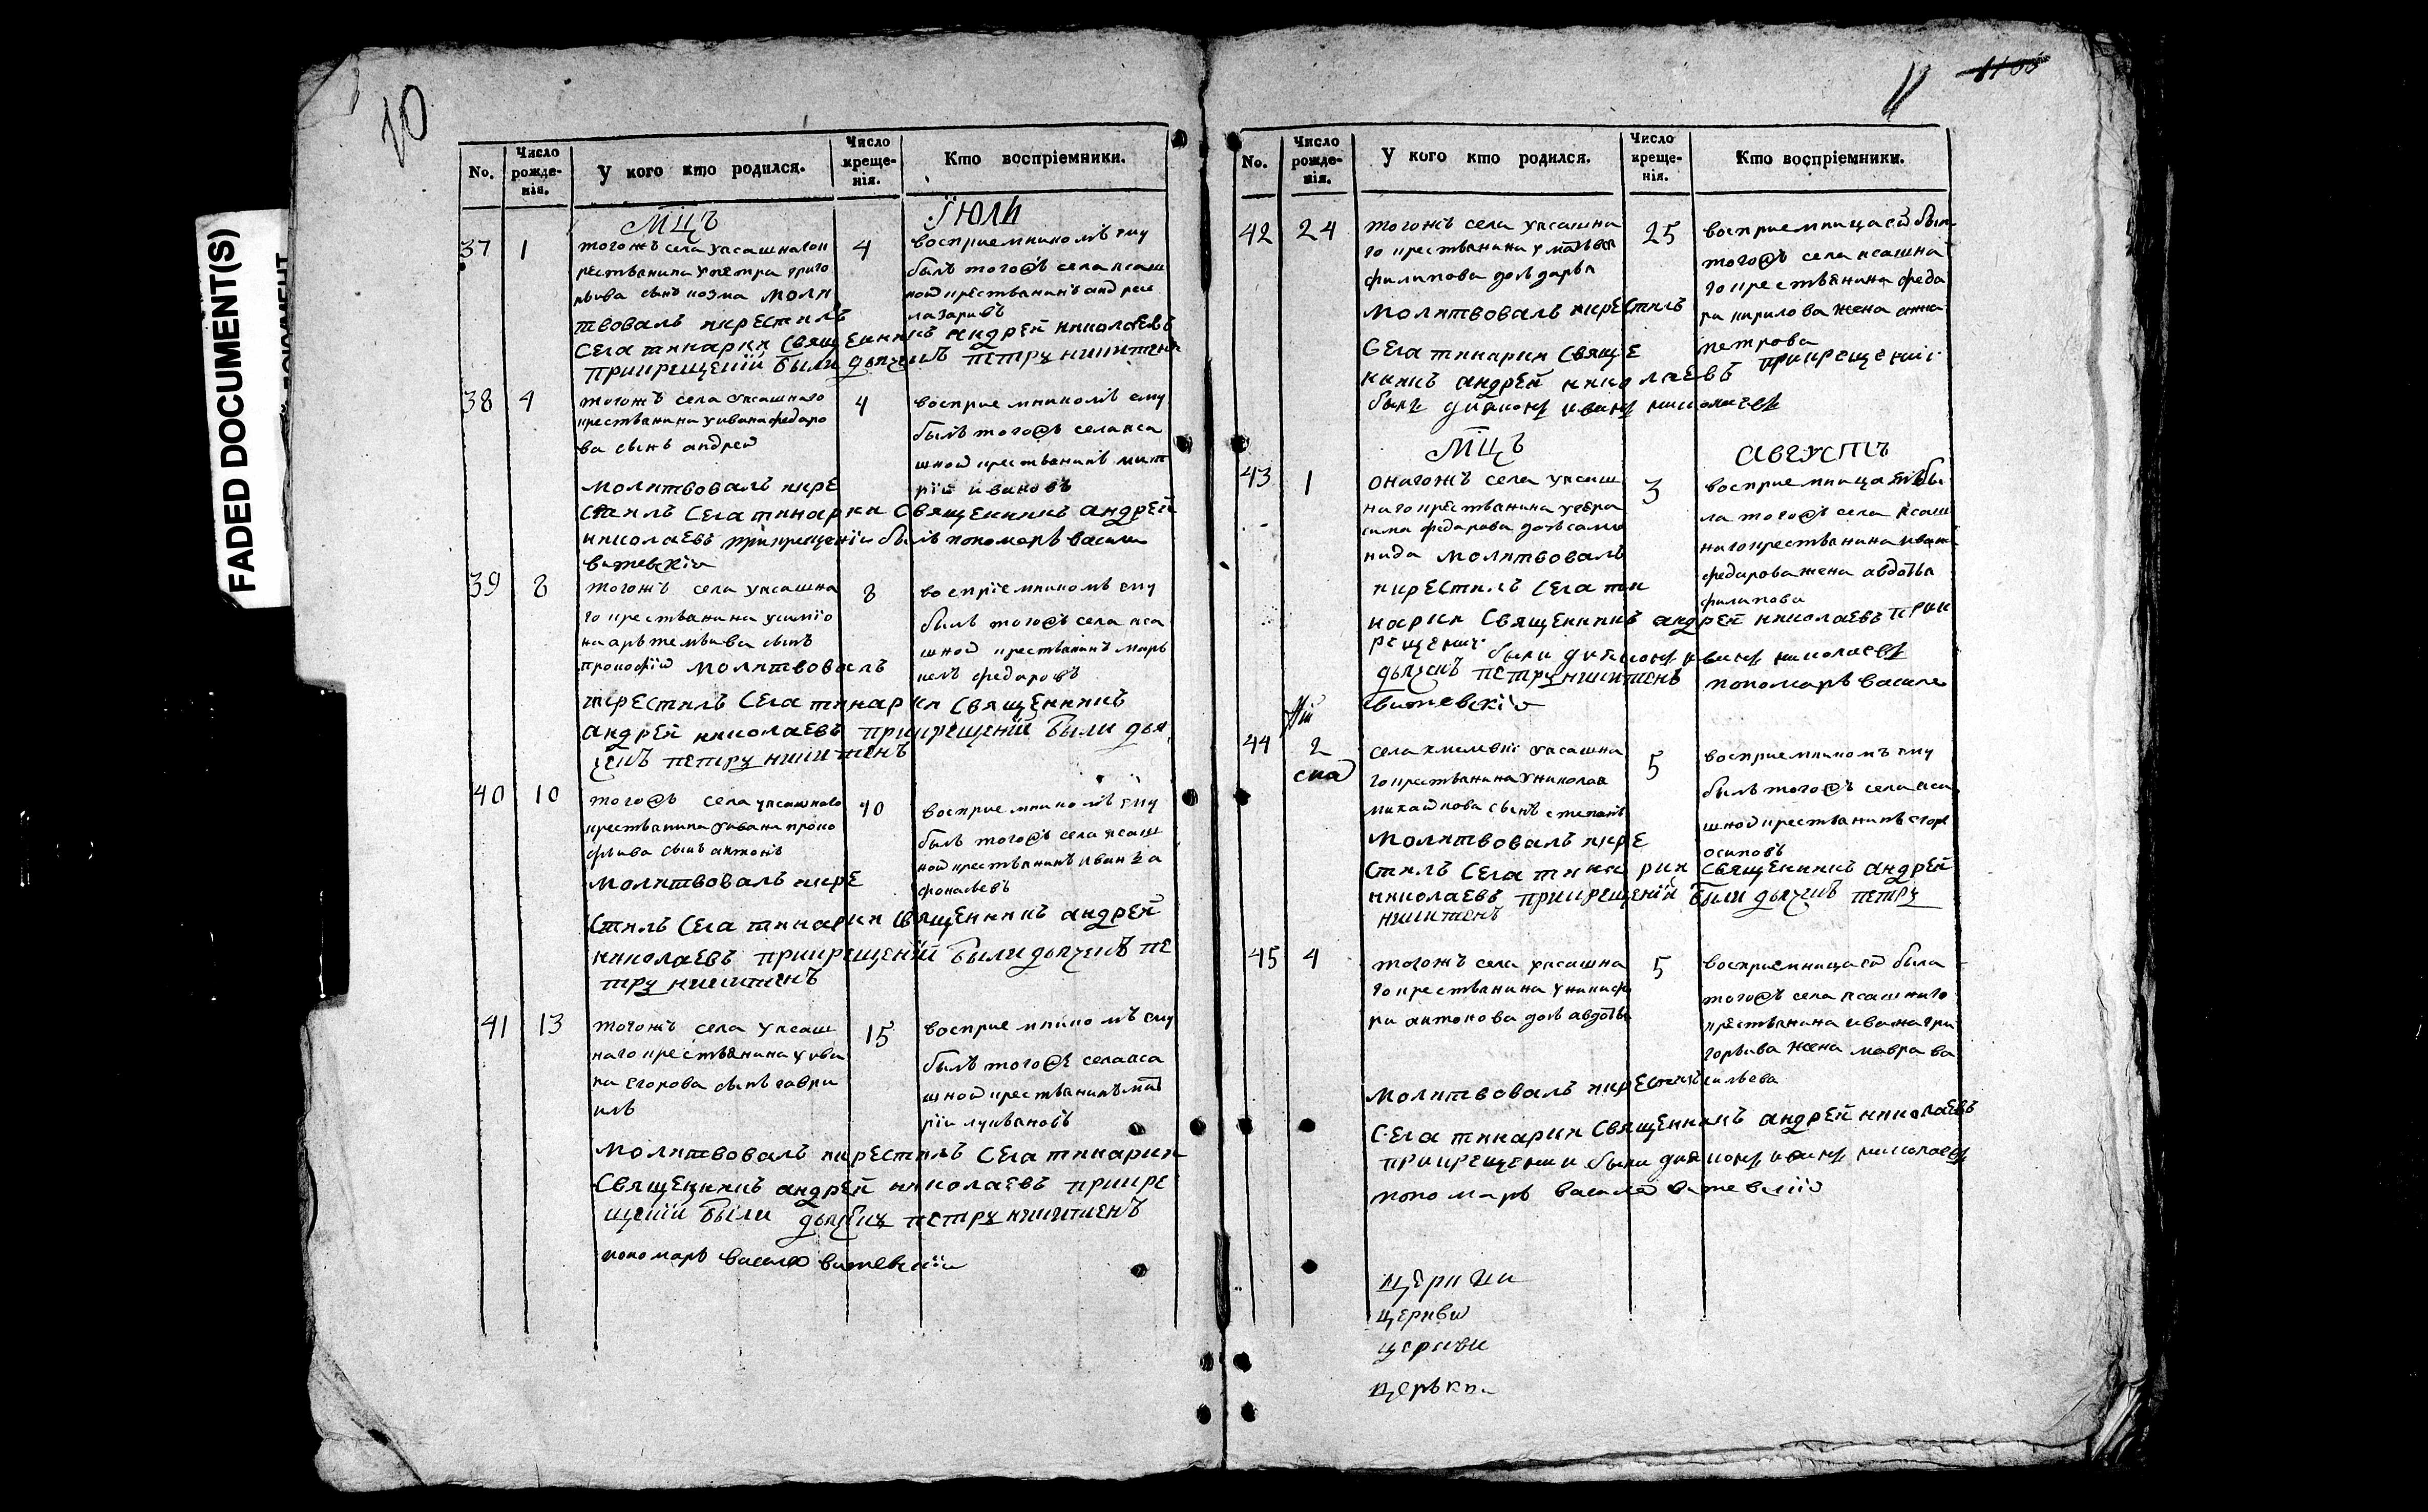 FADED DOCUMENT(S)
10
No.
Число рожде-нія.
У кого кто родился.
Число креще-нія.
Кто воспріемники.
МЦЪ
Iюли
37
1
тогожъ села упсашнагок
рестьянина упетра григо
рьива сынъ козма моли
твовалъ икрестилъ
Сега тинарии Священникъ андрей николаевъ
прикрещеніи были дьячекъ петръ никитенъ
4
восприемникомъ ему
былъ тогожъ села псаш
ной крестьянинъ андреи
лазаривъ
38
4
тогожъ села упсашнаго
крестьянина уиванафедаро
ва сынъ андрей
молитвовалъ икре
стилъ Сега тинарии Священникъ андрей
николаевъ прикрещеніи былъ пономарь васили
витевскіи
4
восприемникомъ ему
былъ тогожъ села пса
шной крестьянинъ мит
рій ивановъ
39
8
тогожъ села упсашна
го крестьянина усиміо
на арьтемьива сынъ
прокофій молитвовалъ
икрестилъ Сега тинарии Священникъ
андрей николаевъ прикрещеніи были дья
чекъ петръ никитенъ
8
воспріемникомъ ему
былъ тогожъ села пса
шной крестьянинъ марь
келъ федаровъ
40
10
тогожъ села упсашнаго
крестьянина уивана проко
фьива сынъ антонъ
молитвовалъ икре
стилъ Сега тинарии Священникъ андрей
николаевъ прикрещеніи были дьячекъ пе
тръ никитенъ
10
восприемникомъ ему
былъ тогожъ села псаш
ной крестьянинъ иван
фонасьевъ
41
13
тогожъ села упсаш
наго крестьянина уива
на егорова сынъ гаври
илъ
молитвовалъ икрестилъ Сега тинарии
Священникъ андрей николаевъ прикре
щеніи были дьячекъ петръ никитенъ
пономарь василей витевскіи
15
восприемникомъ ему
былъ тогожъ села пса
шной крестьянинъ
рій лукьяновъ
11
No.
Число рожде-нія.
У кого кто родился.
Число креще-нія.
Кто воспріемники.
42
24
тогожъ села упсашна
го крестьянина
филипова дочь дарья
молитвовалъ икрестилъ
Сега тинарии Свяще
никъ андрей николаевъ прикрещеніи
былъ диякон иванъ николаевъ
25
восприемницаей был
тогожъ села псашна
го крестьянина феда
ра кирилова жена анна
петрова
МЦЪ
АВГУСТЪ
43
1
онагожъ села упсаш
наго крестьянина угера
сима федарова дочь
нида молитвовалъ
икрестилъ Сега ти
нарии Священникъ андрей николаевъ прик
рещени были диякон иванъ николаевъ
дьячекъ петръ никитенъ пономарь василе
витевскіи
3
восприемницаей бы
ла тогожъ села псаш
нагокрестьянина ивана
федарова жена авдотья
филипова
44
2
села хмилевки упсашна
го крестьянина униколая
михайлова сынъ степанъ
молитвовалъ икре
стилъ Сега тинарии Священникъ андрей
николаевъ прикрещеніи были дьячекъ петръ
никитенъ
5
восприемникомъ ему
былъ тогожъ села пса
шной крестьянинъ егоръ
осиповъ
45
4
тогожъ села упсашна
го крестьянина уникифа
ра антонова дочь авдотья
молитвовалъ икрестилъ
Сега тинарии Священникъ андрей николаевъ
прикрещени были диякон иванъ николаевъ
пономарь василей витевскіи
5
восприемницаей была
тогожъ села псашнаго
крестьянина ивана гри
горьива жена мавра ва
сильева
церкви
церкви
церкви
церькв